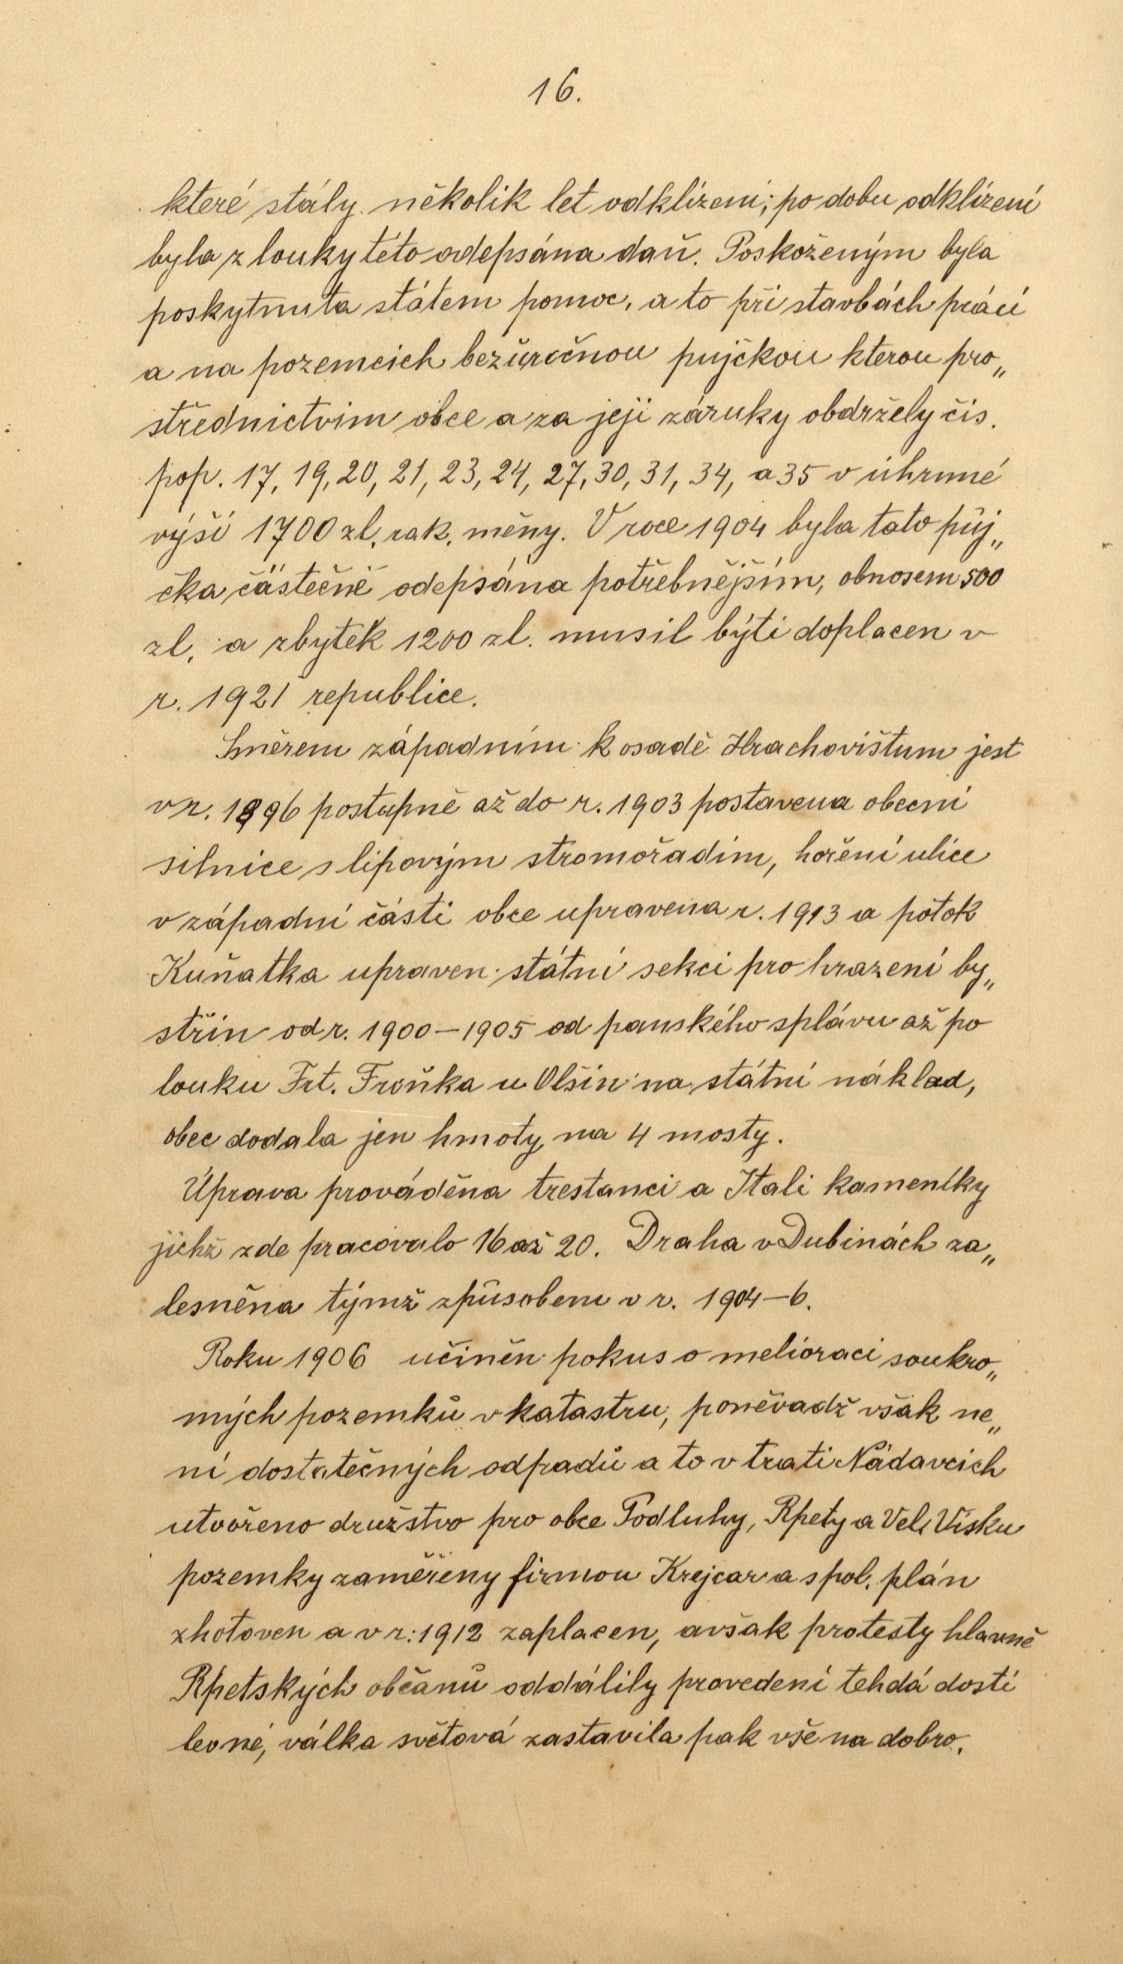 16.
které stály několik let odklízení; po dobu odklízení
byla z louky této odepsána daň. Poskoženým byla
poskytnuta státem pomoc, a to při stavbách prácí
a na pozemcích bezúročnou pujčkou kterou pro„
střednictvim obce a za její záruky obdržely čís.
pop. 17, 19, 20, 21, 23, 24, 27, 30, 31, 34, a 35 v úhrnné
výši 1700 zl. rak. měny. V roce 1904 byla tato půj„
čka částečně odepsána potřebnějším, obnosem 500
zl. a zbytek 1200 zl. musil býti doplacen v
r. 1921 republice.
Směrem západním k osadě Hrachovištum jest
v r. 1896 postupně až do r. 1903 postavena obecní
silnice s lipovým stromořadím, hoření ulice
v západní části obce upravena r. 1913 a potok
Kuňatka upraven státní sekcí pro hrazení by„
střin od r. 1900–1905 od panského splávu až po
louku Frt. Froňka u Olšin na státní náklad,
obec dodala jen hmoty na 4 mosty.
Úprava prováděna trestanci a Itali kameníky
jichž zde pracovalo 16 až 20. Draha v Dubinách za„
lesněna týmž způsobem v r. 1904–6.
Roku 1906 učiněn pokus o melioraci soukro„
mých pozemků v katastru, poněvadž však ne„
ní dostatečných odpadů a to v trati Nádavcích
utvořeno družstvo pro obce Podluhy, Rpety a Vel. Vísku
pozemky zaměřeny firmou Krejcar a spol. plán
zhotoven a v r. 1912 zaplacen, avšak protesty hlavně
Rpetských občanů oddálily provedení tehdá dosti
levné, válka světová zastavila pak vše na dobro.